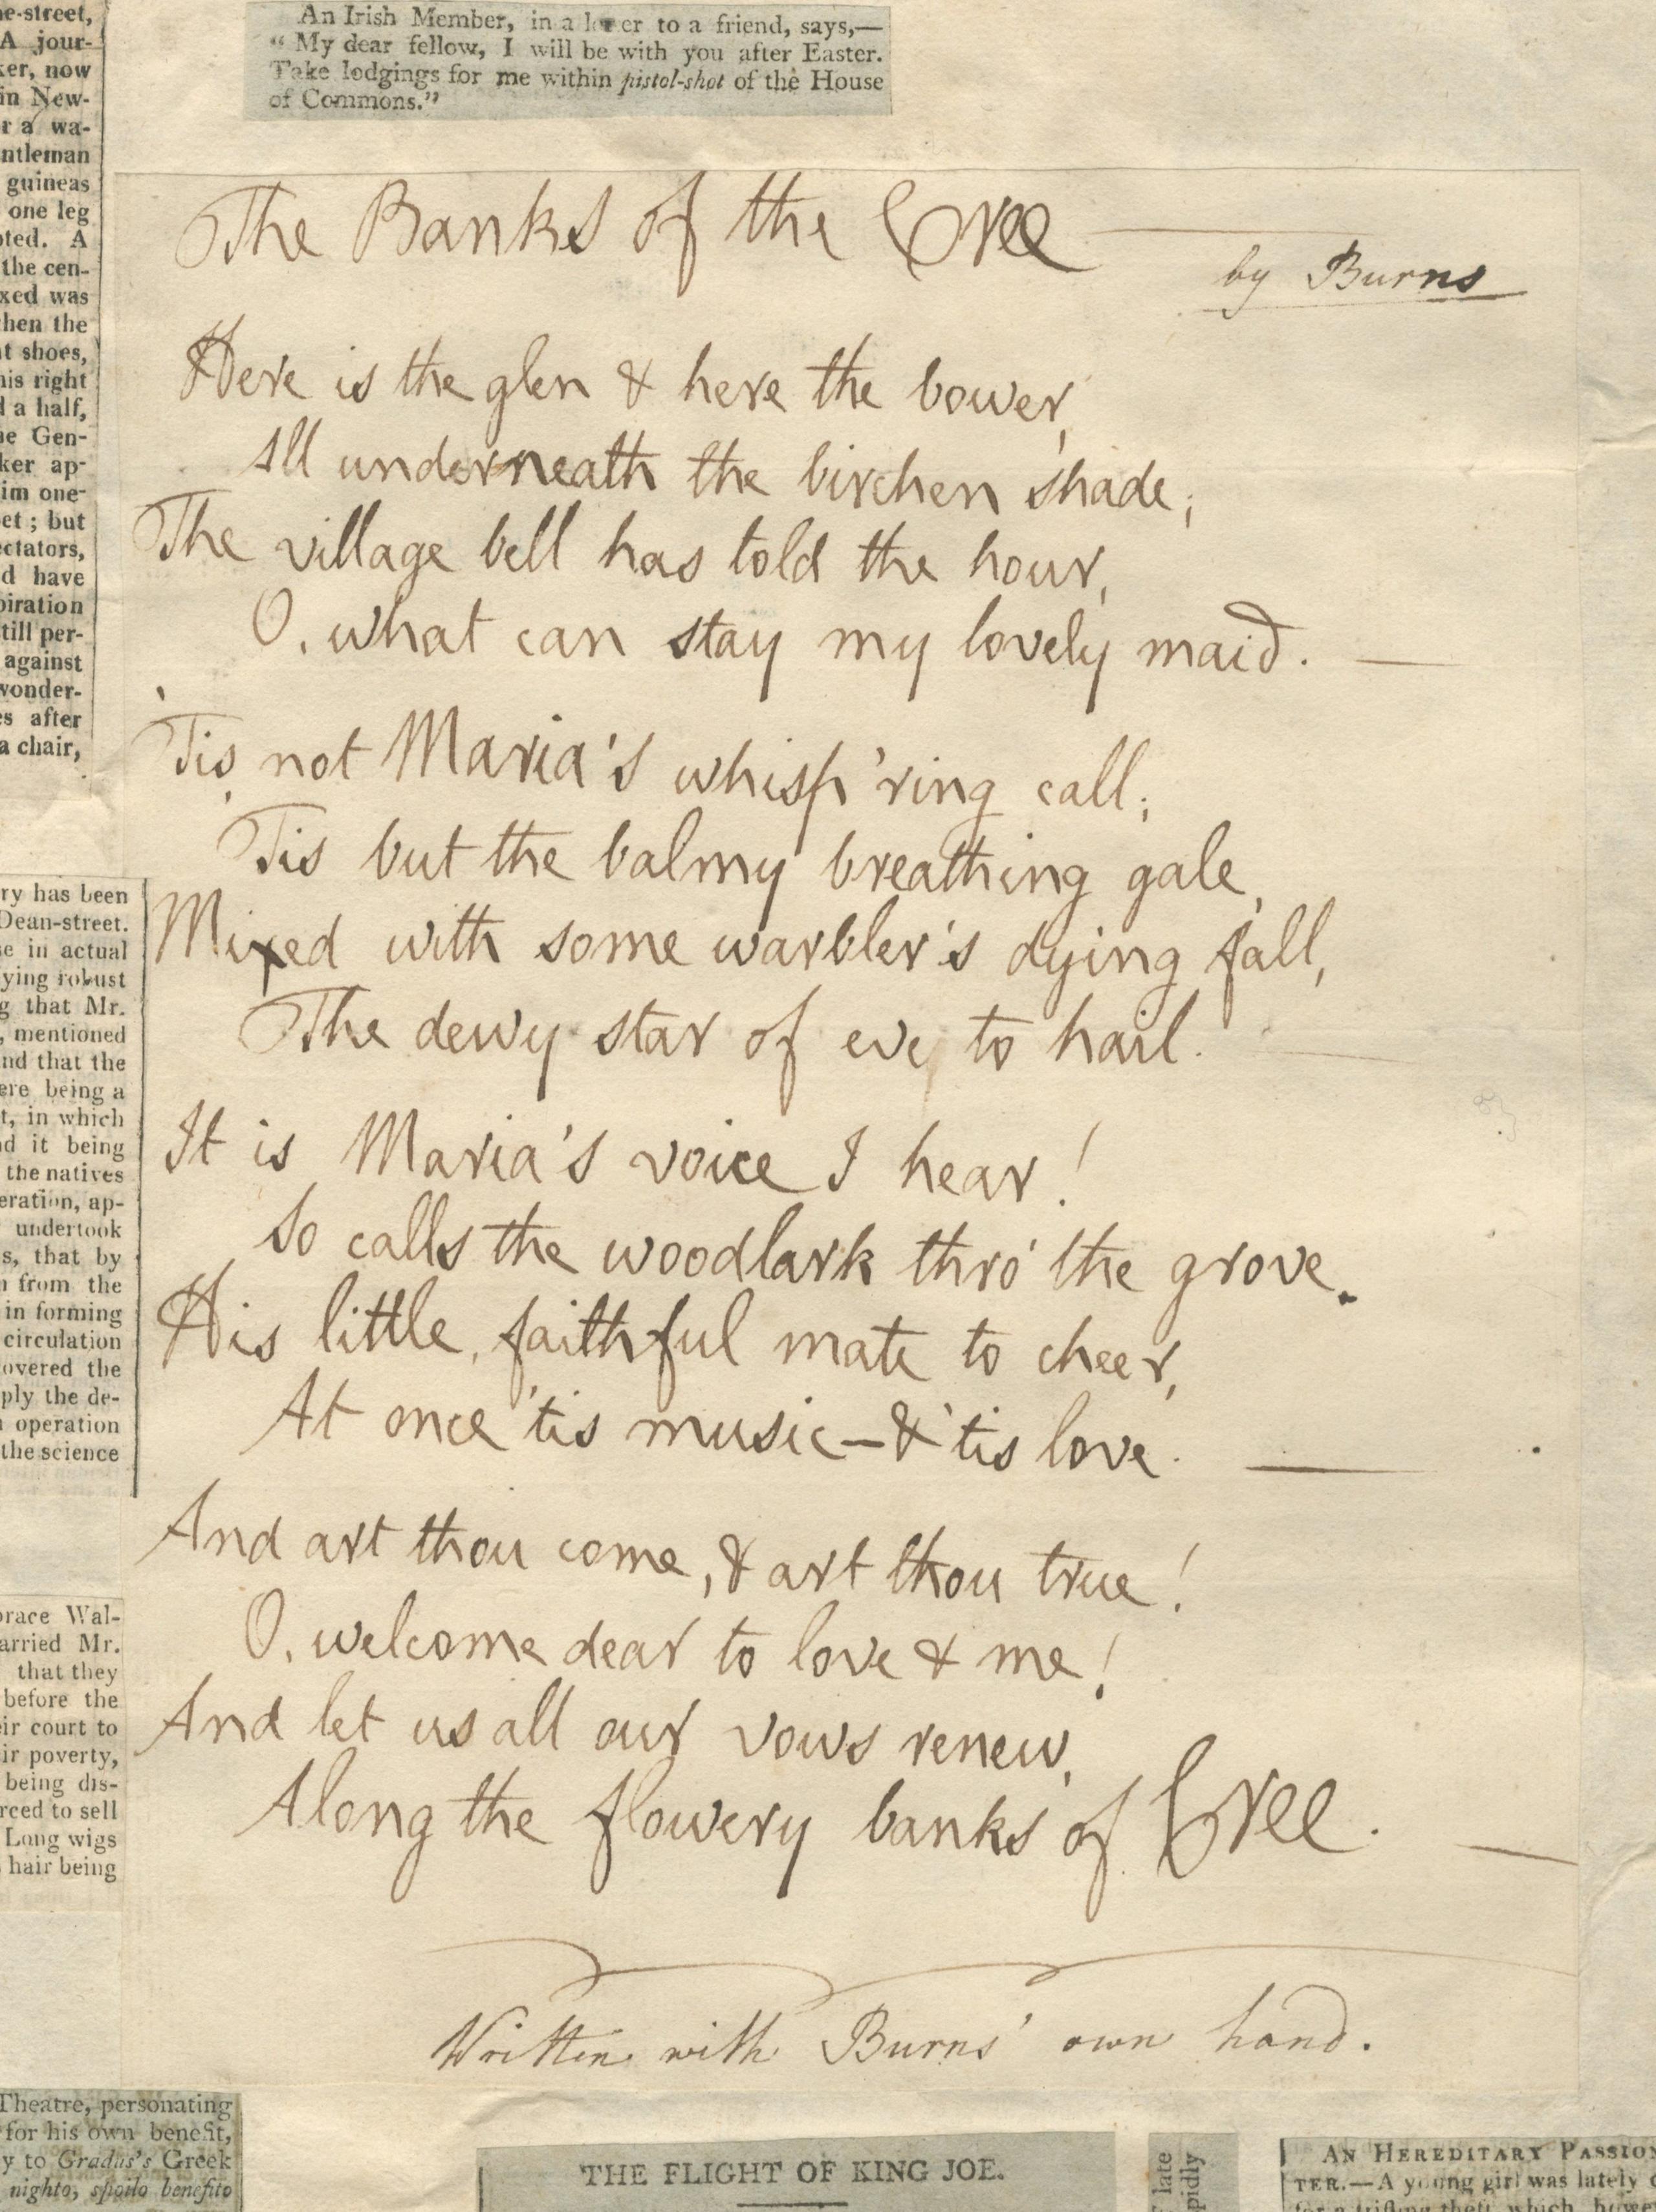 e-street,
A jour-
ker, now
in New-
r a wa-
ntleman
guineas
one leg
oted. A
the cen-
xed was
then the
t shoes,
his right
d a half,
he Gen-
ker ap-
im one-
et; but
ectators,
d have
piration
till per-
against
wonder-
es after
a chair,
An Irish Member, in a le er to a friend, says,—
“My dear fellow, I will be with you after Easter.
Take lodgings for me within pistol-shot of the House
of Commons.”
The Banks of the Cree
by Burns
Here is the glen & here the bower,
All underneath the birchen shade;
The village bell has told the hour,
O, what can stay my lovely maid. —
'Tis not Maria's whisp'ring call;
Tis but the balmy breathing gale,
Mixed with some warbler's dying fall,
The dewy star of eve to hail.
It is Maria's voice I hear!
So calls the woodlark thro' the grove.
His little, faithful mate to cheer,
At once 'tis music — & 'tis love. —
And art thou come, & art thou true!
O, welcome dear to love & me!
And let us all our vows renew,
Along the flowery banks of Cree. —
Written with Burns' own hand.
ry has been
Dean-street.
se in actual
ying robust
g that Mr.
, mentioned
nd that the
ere being a
t, in which
nd it being
the natives
eration, ap-
undertook
s, that by
n from the
in forming
circulation
overed the
ply the de-
n operation
the science
orace Wal-
arried Mr.
that they
before the
eir court to
ir poverty,
being dis-
rced to sell
Long wigs
hair being
Theatre, personating
for his own benefit,
y to Gradus's Greek
nighto, spoilo benefito
THE FLIGHT OF KING JOE.
late
pidly
AN HEREDITARY PASSION
TER.—A young girl was lately c
for a trifling theft, which, howe